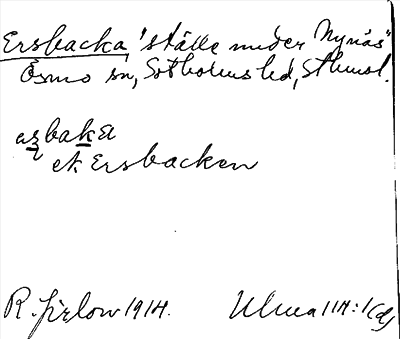 Ersbacka "ställe under Nynäs"
Ösmo sn, Sotholms hd, Sthmsl.
asbaka
ek Ersbacken
R. Jirlow 1914. Ulma 114:1(d)